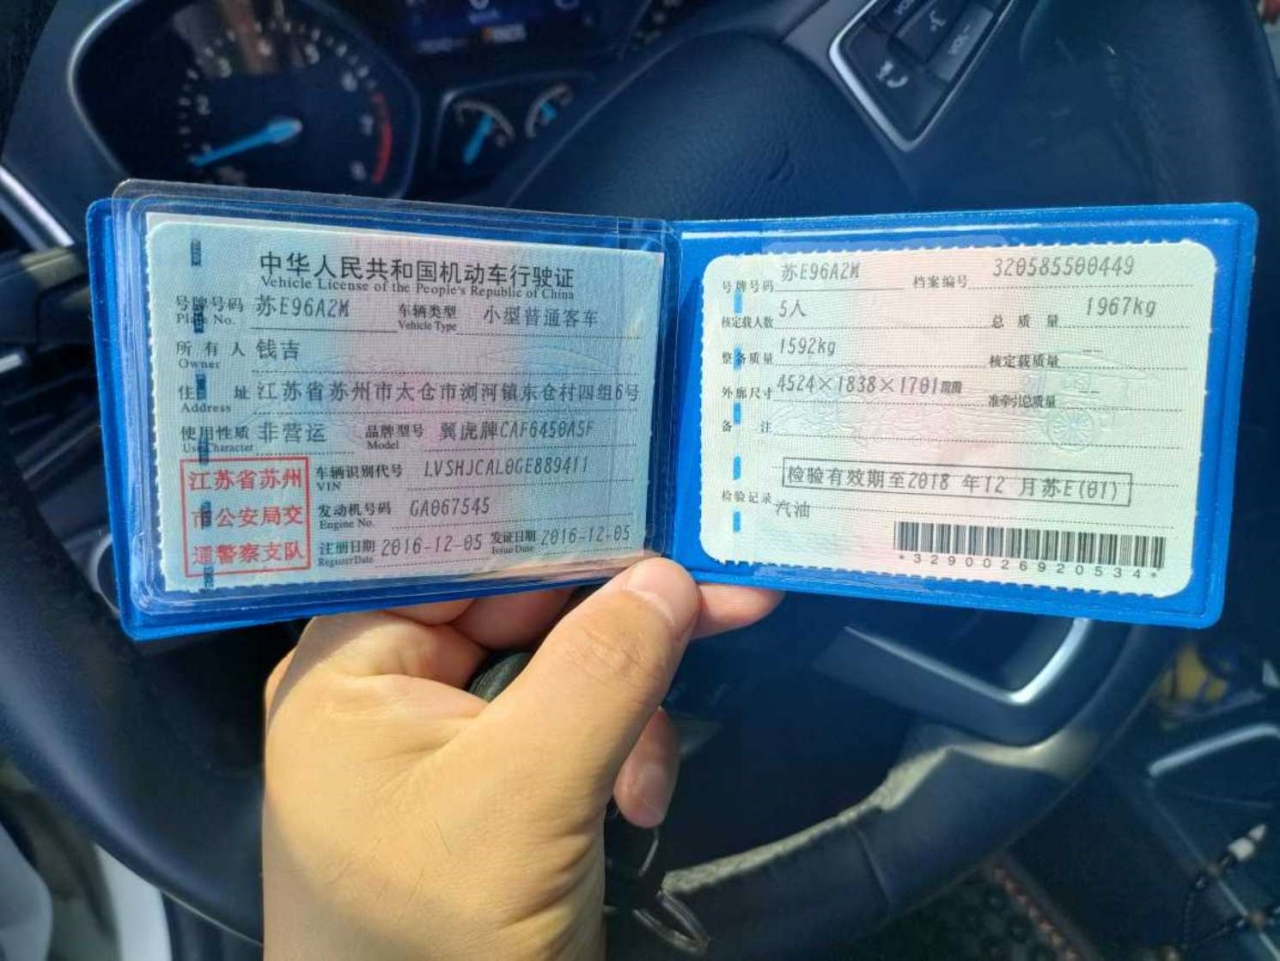 中华人民共和国机动车行驶证
Vehicle License of the People's Republic of China
号牌号码 苏E96A2M 车辆类型 小型普通客车
Plate No. Vehicle Type
所有人 钱吉
Owner
住址 江苏省苏州市太仓市浏河镇东仓村四组6号
Address
使用性质 非营运 品牌型号 翼虎牌CAF6450A5F
Use Character Model
江苏省苏州
市公安局交
通警察支队
车辆识别代号 LVSHJCAL0GE889411
VIN
发动机号码 GA067545
Engine No.
注册日期 2016-12-05 发证日期 2016-12-05
Register Date Issue Date
号牌号码 苏E96A2M 档案编号 320585500449
核定载人数 5人 总质量 1967kg
整备质量 1592kg 核定载质量 --
外廓尺寸 4524×1838×1701 准牵引总质量 --
备注
检验有效期至2018年12月苏E(01)
检验记录 汽油
*3290026920534*
VOL-